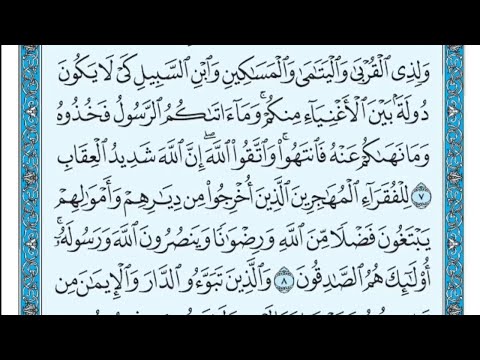 وَلِذِى ٱلْقُرْبَىٰ وَٱلْيَتَـٰمَىٰ وَٱلْمَسَـٰكِينِ وَٱبْنِ ٱلسَّبِيلِ كَىْ لَا يَكُونَ
دُولَةَۢ بَيْنَ ٱلْأَغْنِيَآءِ مِنكُمْ ۚ وَمَآ ءَاتَىٰكُمُ ٱلرَّسُولُ فَخُذُوهُ
وَمَا نَهَىٰكُمْ عَنْهُ فَٱنتَهُوا۟ ۚ وَٱتَّقُوا۟ ٱللَّهَ ۖ إِنَّ ٱللَّهَ شَدِيدُ ٱلْعِقَابِ
٧ لِلْفُقَرَآءِ ٱلْمُهَـٰجِرِينَ ٱلَّذِينَ أُخْرِجُوا۟ مِن دِيَـٰرِهِمْ وَأَمْوَٰلِهِمْ
يَبْتَغُونَ فَضْلًا مِّنَ ٱللَّهِ وَرِضْوَٰنًا وَيَنصُرُونَ ٱللَّهَ وَرَسُولَهُۥٓ ۚ
أُو۟لَـٰٓئِكَ هُمُ ٱلصَّـٰدِقُونَ ٨ وَٱلَّذِينَ تَبَوَّءُو ٱلدَّارَ وَٱلْإِيمَـٰنَ مِن